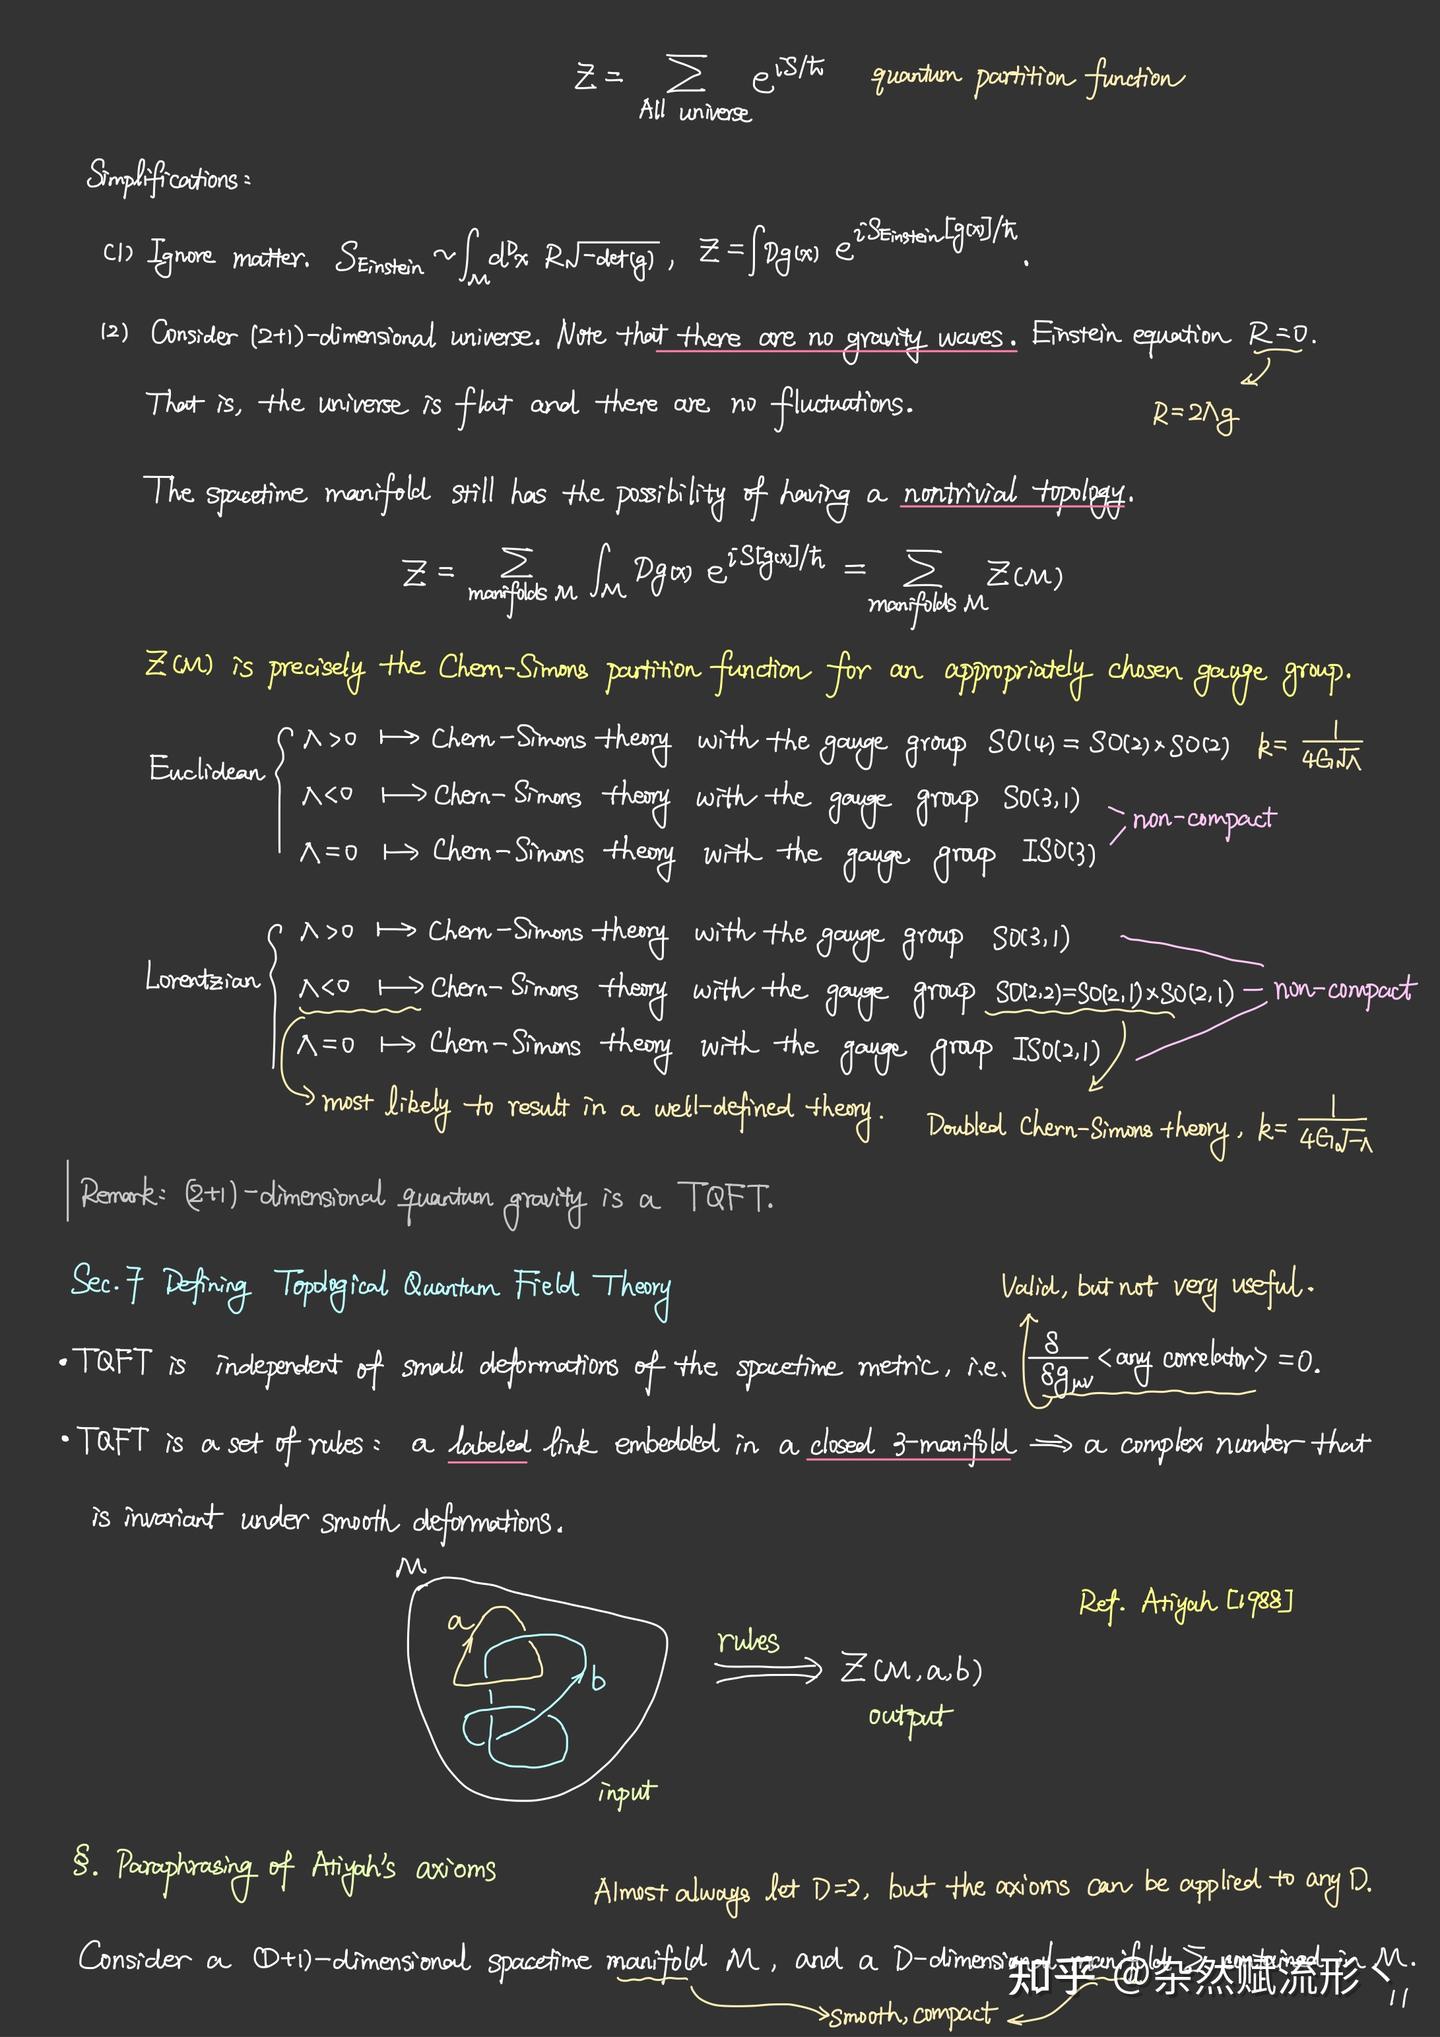 Z = ∑ e^{iS/ħ} quantum partition function
All universe
Simplifications:
(1) Ignore matter. S_{Einstein} ~ ∫_M d^D x R√-det(g), Z = ∫Dg(x) e^{iS_{Einstein}[g(x)]/ħ}.
(2) Consider (2+1)-dimensional universe. Note that there are no gravity waves. Einstein equation R=0.
That is, the universe is flat and there are no fluctuations.
R=2Λg
The spacetime manifold still has the possibility of having a nontrivial topology.
Z = ∑_{manifolds M} ∫_M Dg(x) e^{iS[g(x)]/ħ} = ∑_{manifolds M} Z(M)
Z(M) is precisely the Chern-Simons partition function for an appropriately chosen gauge group.
Euclidean
Λ>0 ↦ Chern-Simons theory with the gauge group SO(4) = SO(2)×SO(2) k = 1/(4G√Λ)
Λ<0 ↦ Chern-Simons theory with the gauge group SO(3,1)
non-compact
Λ=0 ↦ Chern-Simons theory with the gauge group ISO(3)
Lorentzian
Λ>0 ↦ Chern-Simons theory with the gauge group SO(3,1)
Λ<0 ↦ Chern-Simons theory with the gauge group SO(2,2)=SO(2,1)×SO(2,1) non-compact
Λ=0 ↦ Chern-Simons theory with the gauge group ISO(2,1)
most likely to result in a well-defined theory. Doubled Chern-Simons theory, k = 1/(4G√-Λ)
Remark: (2+1)-dimensional quantum gravity is a TQFT.
Sec.7 Defining Topological Quantum Field Theory
Valid, but not very useful.
• TQFT is independent of small deformations of the spacetime metric, i.e. δ/δg_{μν} <any correlator> = 0.
• TQFT is a set of rules: a labeled link embedded in a closed 3-manifold ⟹ a complex number that
is invariant under smooth deformations.
M
a
b
rules
Z(M,a,b)
output
input
Ref. Atiyah [1988]
§. Paraphrasing of Atiyah's axioms
Almost always let D=2, but the axioms can be applied to any D.
Consider a (D+1)-dimensional spacetime manifold M, and a D-dimensional manifold Σ contained in M.
smooth, compact
知乎 @杂然赋流形
11